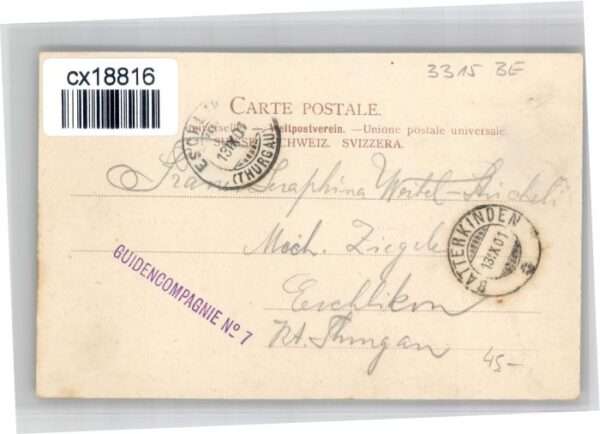 cx18816
3315 BE
CARTE POSTALE.
Weltpostverein. — Unione postale universale.
SCHWEIZ. SVIZZERA.
ESCHL
13.X.01
(THURGAU)
Seraphina
Mech. Ziegel
Eschlikon
Kt. Thurgau
BÄTTERKINDEN
13.X.01
GUIDENCOMPAGNIE Nº 7
45-